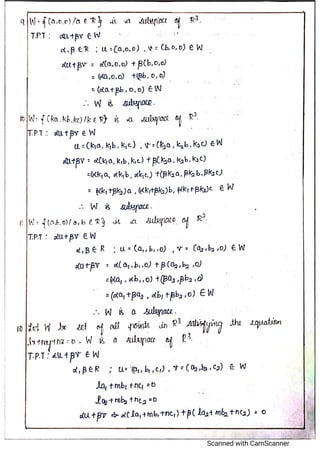 9. W = {(a,0,0)/a ∈ R} is a subspace of R³.
T.P.T : αu+βv ∈ W
α,β ∈ R ; u = (a,0,0) , v = (b,0,0) ∈ W
αu+βv = α(a,0,0) + β(b,0,0)
= (αa,0,0) + (βb,0,0)
= (αa+βb, 0,0) ∈ W
∴ W is subspace.
10. W = {(ka,kb,kc)/k ∈ R} is a subspace of R³.
T.P.T : αu+βv ∈ W
u = (k₁a, k₁b, k₁c) , v = (k₂a, k₂b, k₂c) ∈ W
αu+βv = α(k₁a, k₁b, k₁c) + β(k₂a, k₂b, k₂c)
= (αk₁a, αk₁b, αk₁c) + (βk₂a, βk₂b, βk₂c)
= (αk₁+βk₂)a , (αk₁+βk₂)b, (αk₁+βk₂)c ∈ W
∴ W is subspace.
W = {(a,b,0)/a,b ∈ R} is a subspace of R³.
T.P.T : αu+βv ∈ W
α,β ∈ R ; u = (a₁,b₁,0) , v = (a₂,b₂,0) ∈ W
αu+βv = α(a₁,b₁,0) + β(a₂,b₂,0)
= (αa₁, αb₁,0) + (βa₂, βb₂,0)
= (αa₁+βa₂ , αb₁+βb₂,0) ∈ W
∴ W is a subspace.
Let W be set of all points in R³ satisfying the equation
lx+my+nz=0. W is a subspace of R³.
T.P.T : αu+βv ∈ W
α,β ∈ R ; u = (a₁, b₁, c₁) , v = (a₂,b₂,c₂) ∈ W
la₁+mb₁+nc₁ = 0
la₂+mb₂+nc₂ = 0
αu+βv ⇒ α(la₁+mb₁+nc₁) + β(la₂+mb₂+nc₂) = 0
Scanned with CamScanner